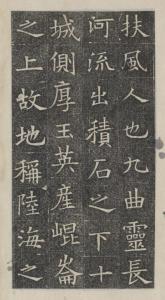 扶風人也九曲靈長
河流出積石之下十
城側厚玉英產崐崙
之上故地稱陸海之